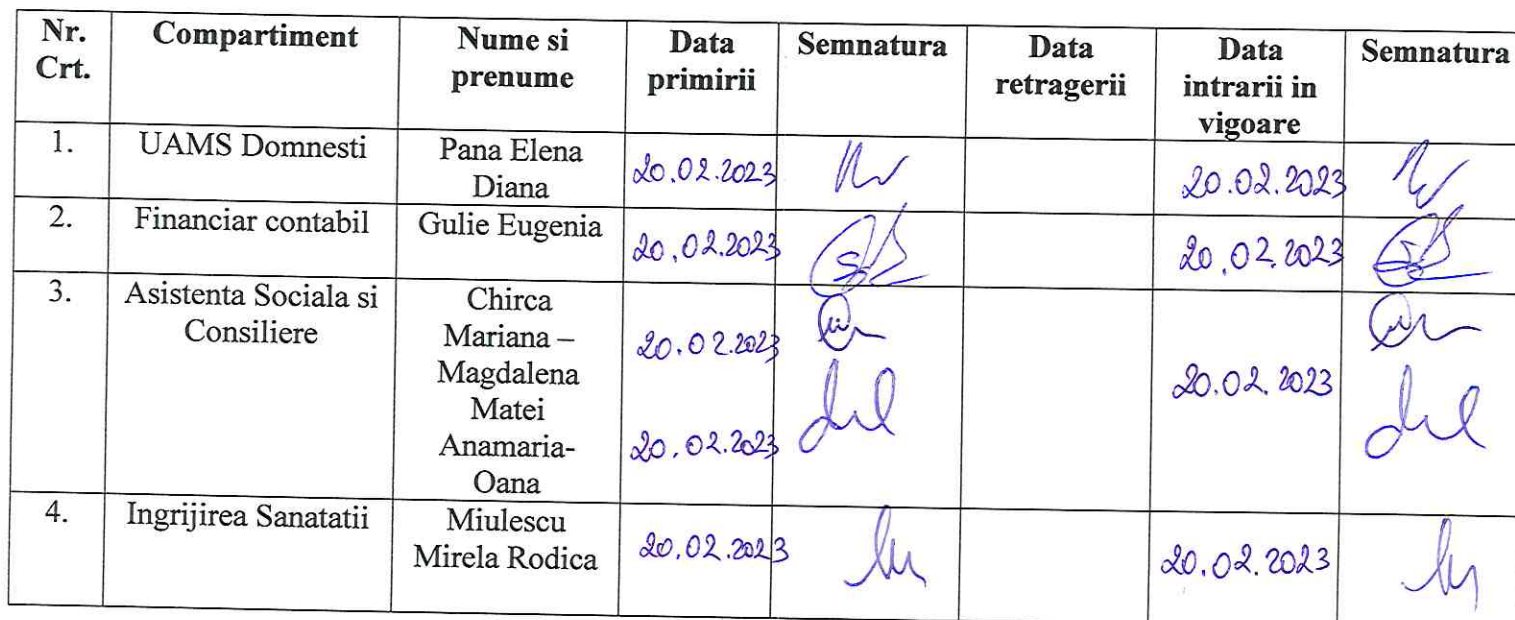 Nr. Crt. Compartiment Nume si prenume Data primirii Semnatura Data retragerii Data intrarii in vigoare Semnatura
1. UAMS Domnesti Pana Elena Diana 20.02.2023 20.02.2023
2. Financiar contabil Gulie Eugenia 20.02.2023 20.02.2023
3. Asistenta Sociala si Consiliere Chirca Mariana – Magdalena 20.02.2023 20.02.2023
Matei Anamaria-Oana 20.02.2023
4. Ingrijirea Sanatatii Miulescu Mirela Rodica 20.02.2023 20.02.2023